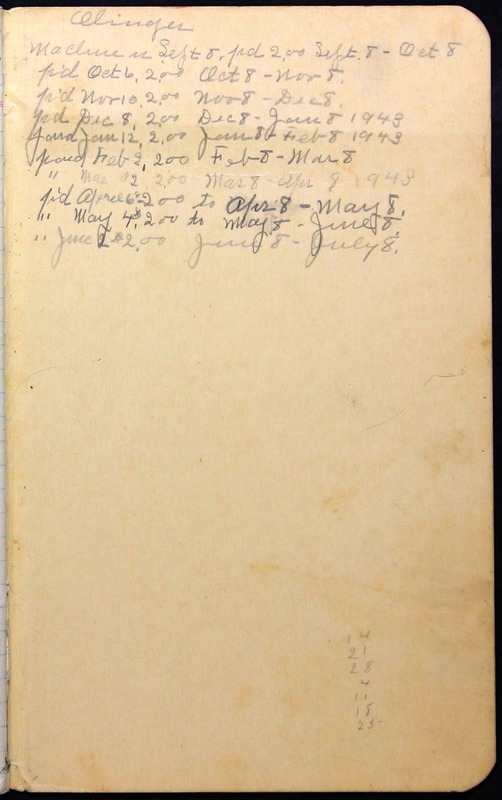 Olinger
Machine in Sept 8, pd 2.00 Sept. 8 - Oct 8
p'd Oct 6, 2.00 Oct 8 - Nov 8.
p'd Nov 10, 2.00 Nov 8 - Dec 8.
pd Dec 8, 2.00 Dec 8 - Jan 8 1943
paid Jan 12, 2.00 Jan 8 - Feb 8 1943
paid Feb 2, 2.00 Feb 8 - Mar 8
" Mar 2 2.00 Mar 8 - Apr 8 1943
p'd April 6 2.00 to Apr 8 - May 8.
" May 4, 2.00 to May 8 - June 8.
" June 2.00 June 8 - July 8.
14
21
28
4
11
18
25